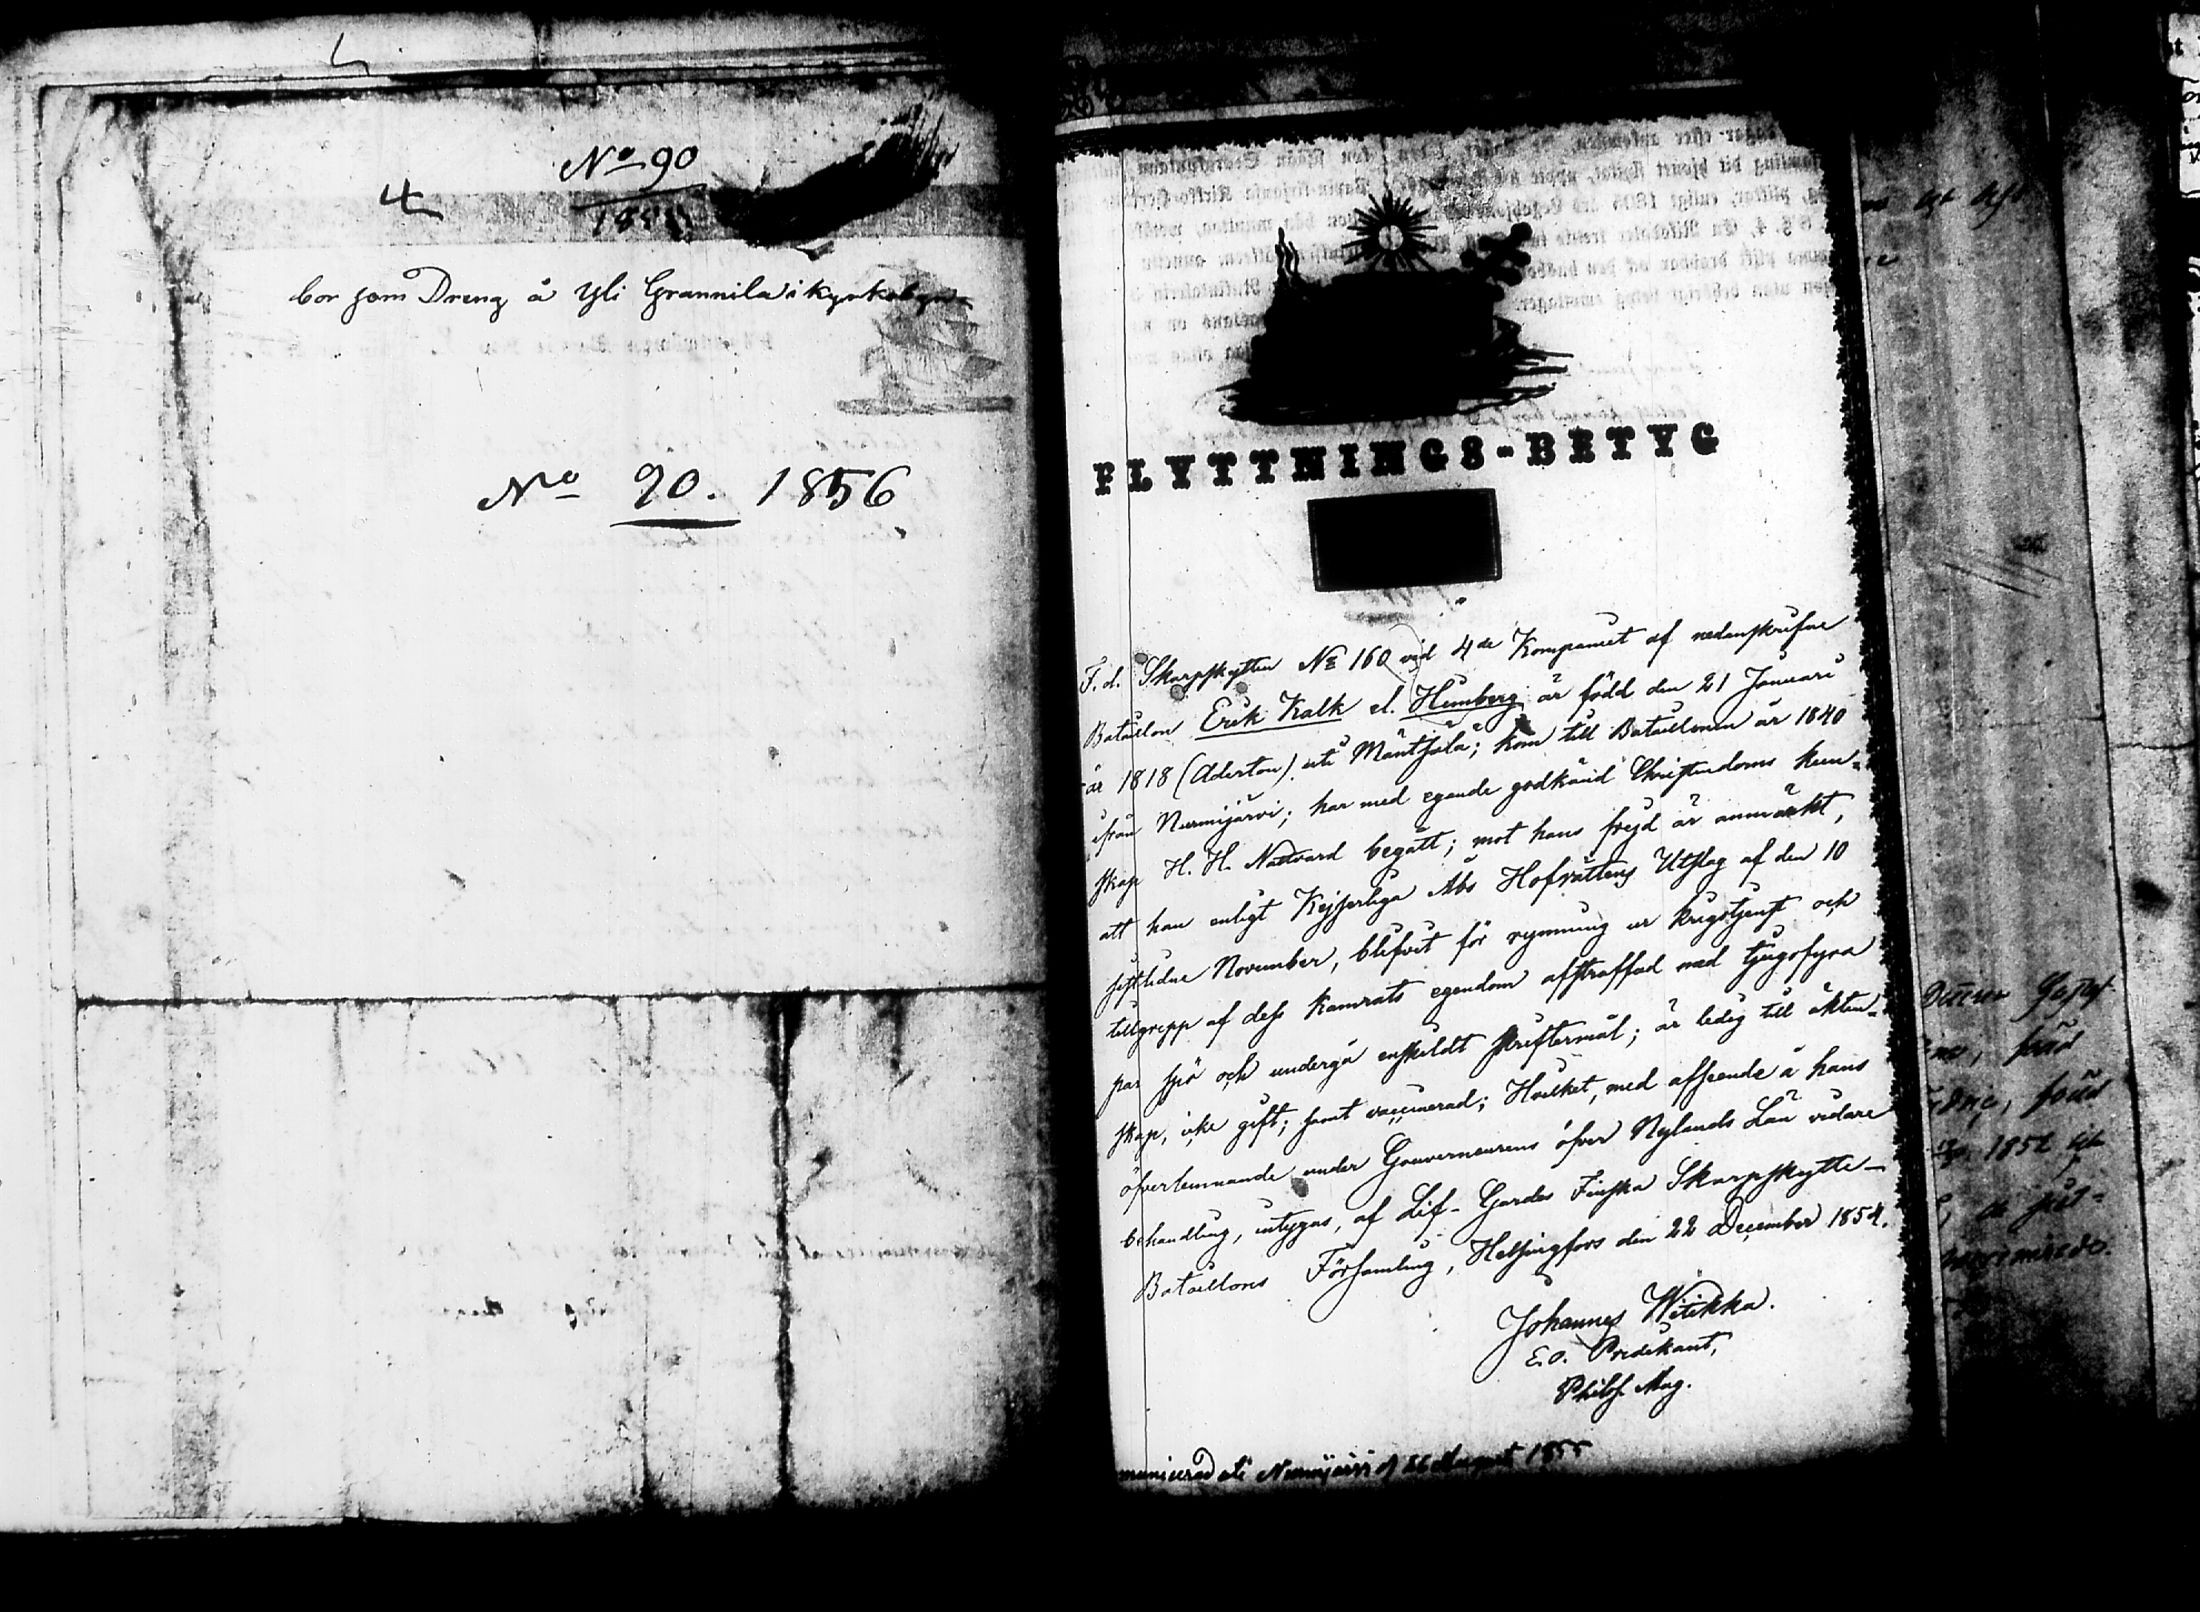 No 90
4
bor som Dreng å Yli Grannila i kyrkobyn
No 90. 1856
FLYTTNINGS-BETYG
F. d. Skarpskytten No 160 vid 4de Kompaniet af nedanskrifne
Bataillon Erik Kalk el. Humberg är född den 21 Januari
år 1818 (Aderton) uti Mäntsälä; kom till Bataillonen år 1840
ifrån Nurmijärvi; har med egande godkänd Christendoms kun-
skap H. H. Nattvard begått; mot hans frejd är anmärkt,
att han enligt Kejserliga Åbo Hofrättens Utslag af den 10
sistlidne November, blifvit för rymning ur krigstjenst och
tillgrepp af dess Kamrats egendom afstraffad med tjugofyra
par spö och undergå enskildt skriftermål; är ledig till äkten-
skap, icke gift; samt vaccinerad; Hvilket, med afseende å hans
öfverlemnande under Gouverneurens öfver Nylands Län vidare
behandling, intygas, af Lif-Gardes Finska Skarpskytte-
Bataillons Församling, Helsingfors den 22 December 1854.
Johannes Witikka.
E. o. Predikant,
Philos. Mag.
municerad uti Nurmijärvi d 26 August 1855
född
född
1852